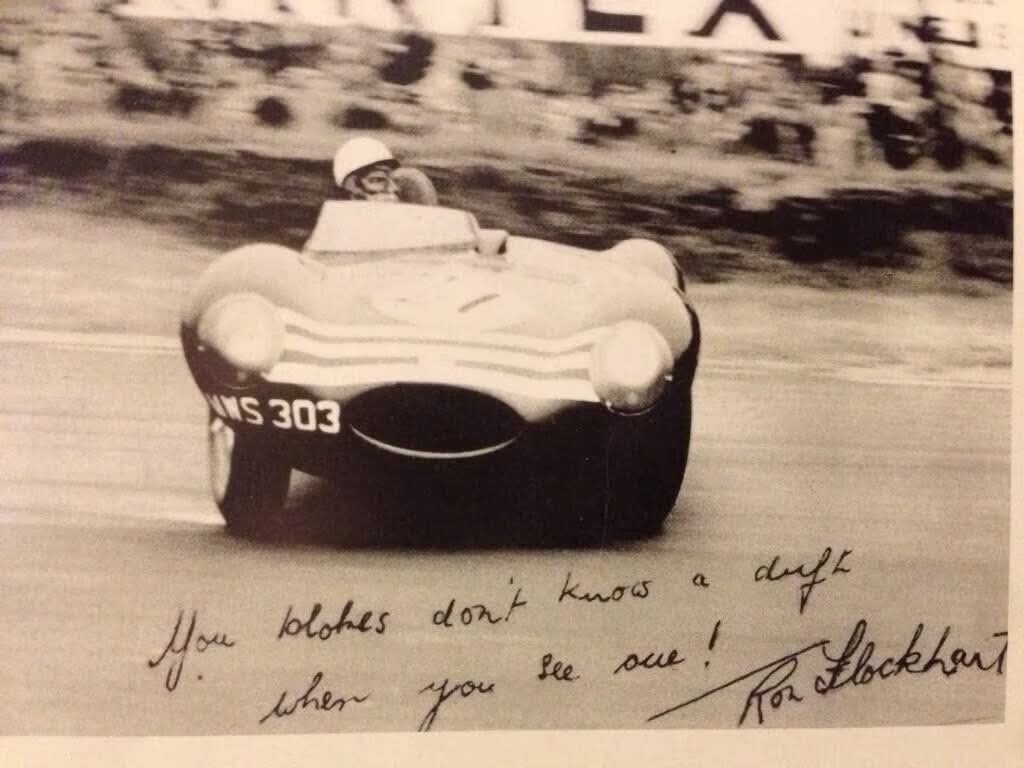 NWS 303
You blokes don't know a drift
when you see one!
Ron Flockhart